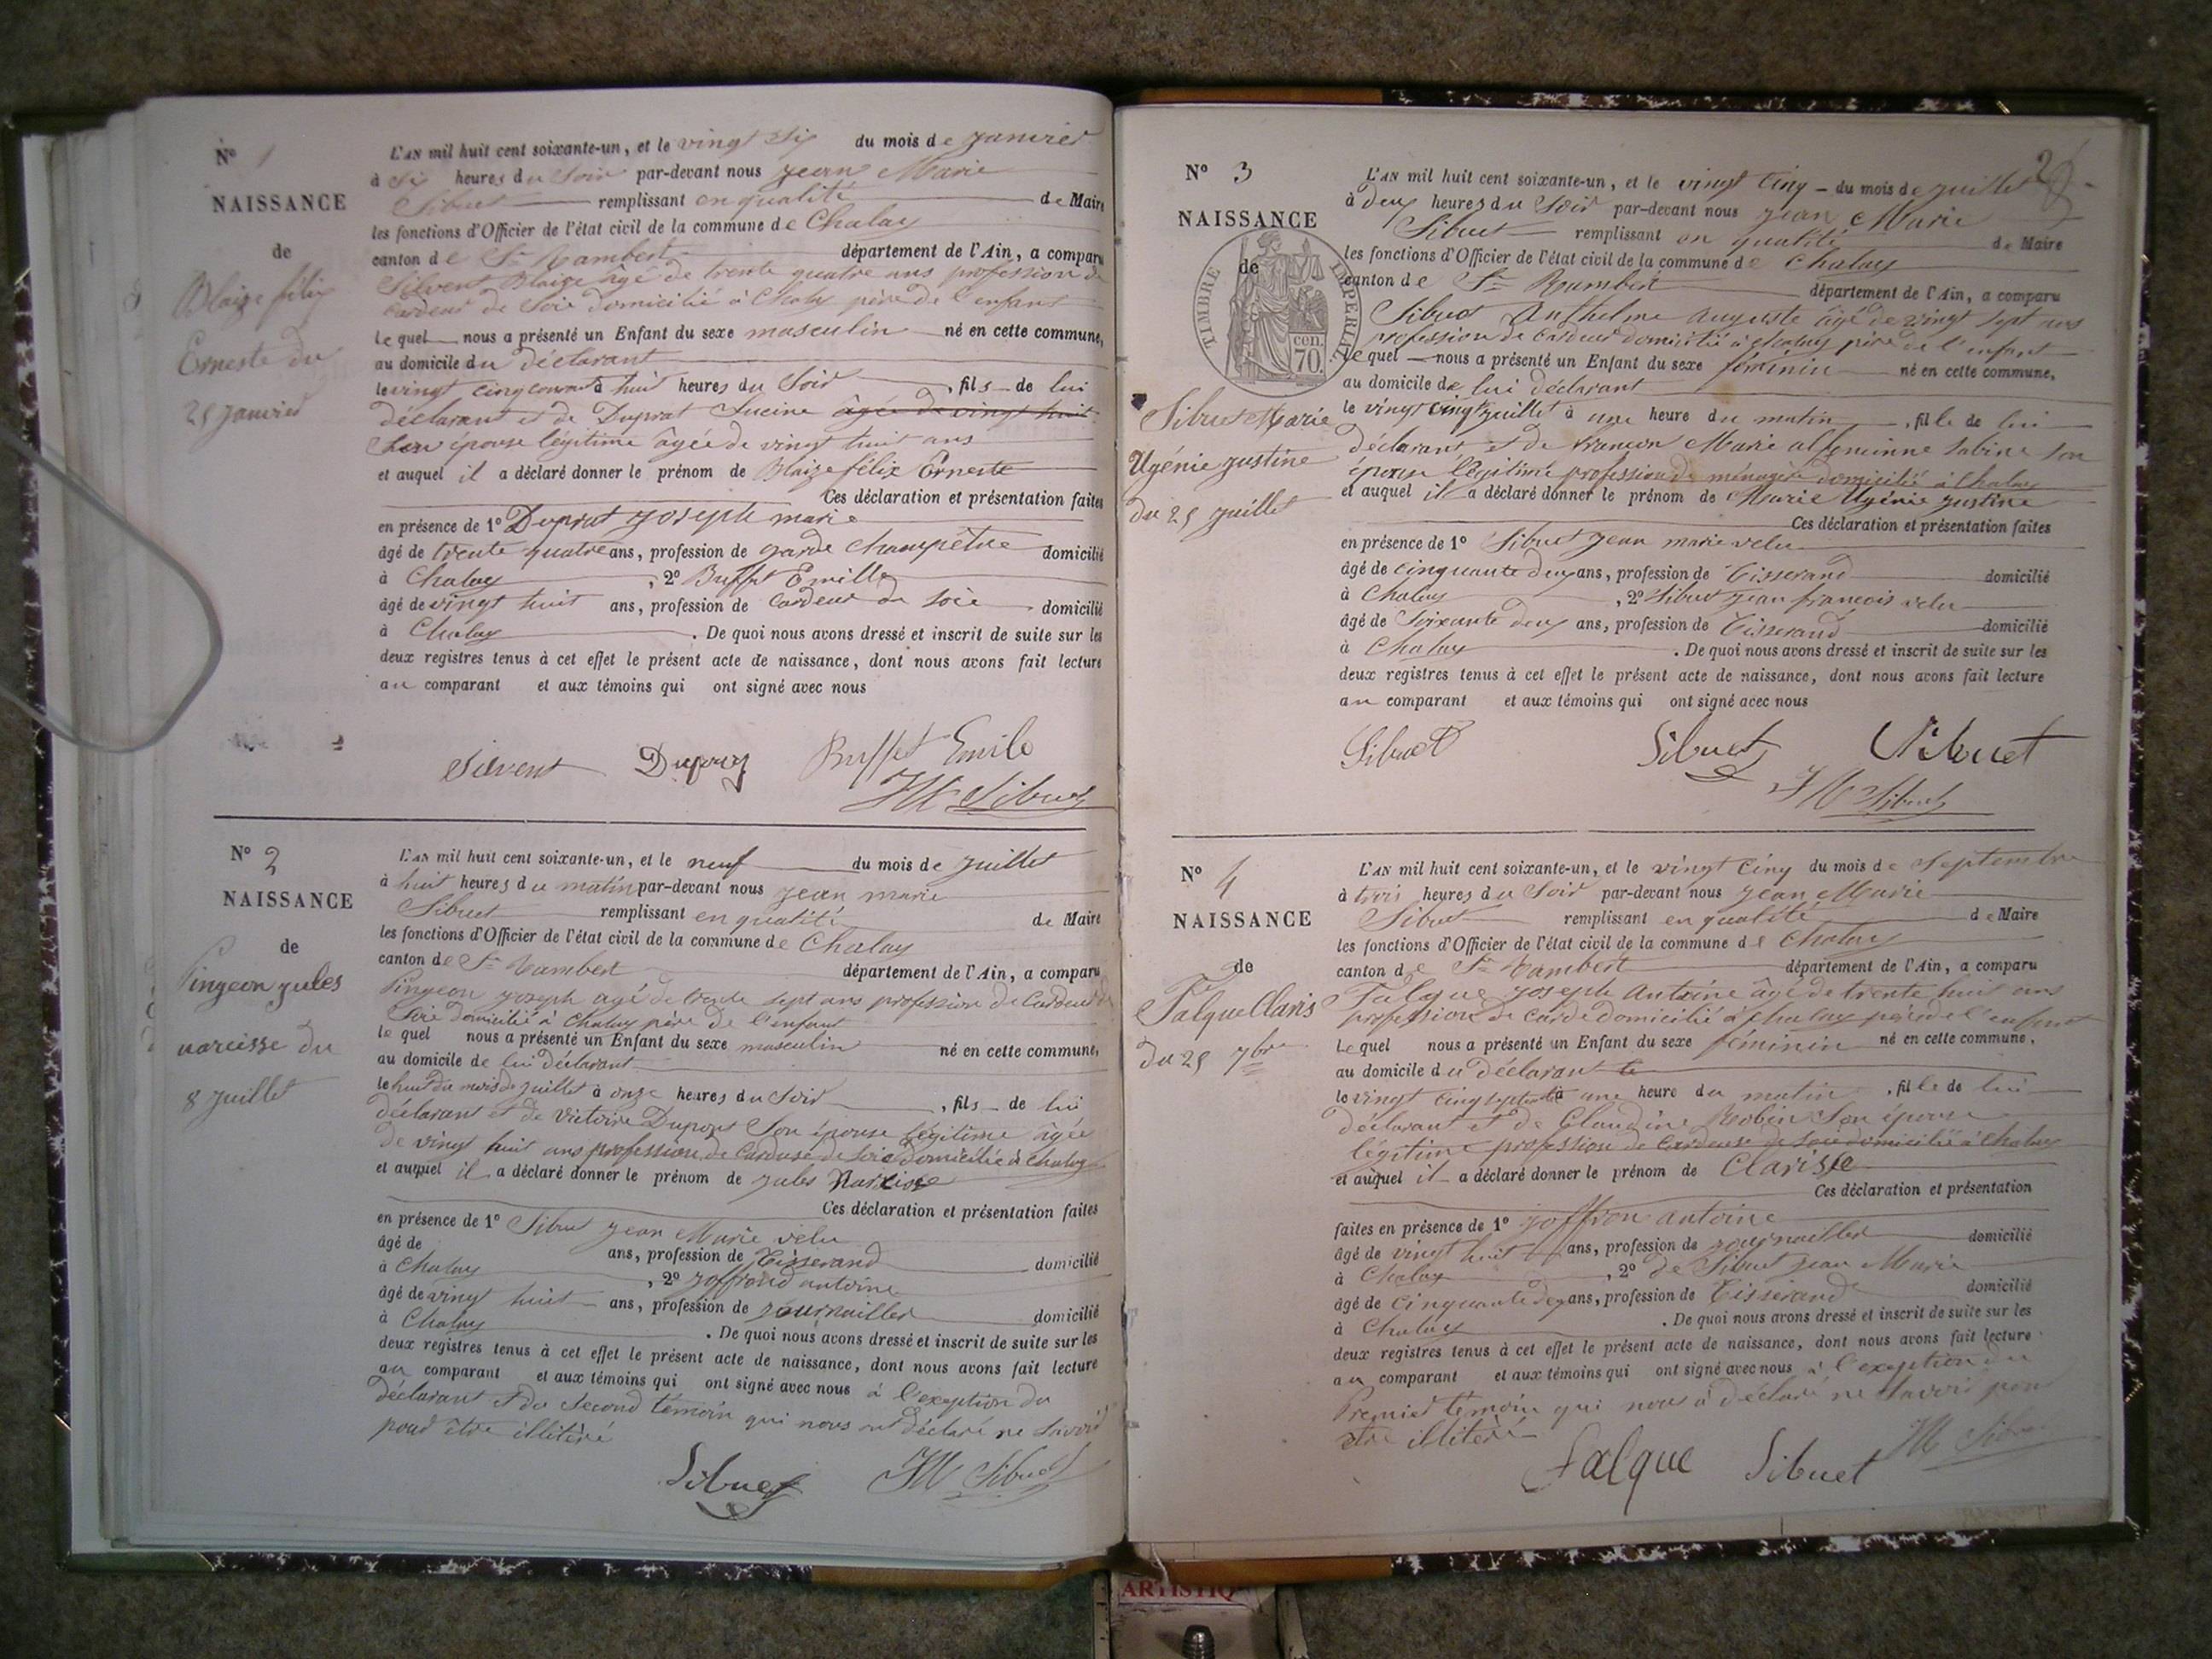 N° 1
NAISSANCE
de
Blaize félix
Erneste du
25 janvier
L'AN mil huit cent soixante-un, et le vingt six du mois de janvier
à six heures du soir par-devant nous jean Marie
Sibuet remplissant en qualité de Maire
les fonctions d'Officier de l'état civil de la commune de Chaley
canton de St Rambert département de l'Ain, a comparu
Silvent Blaize âgé de trente quatre ans profession de
cardeur de Soie domicilié à Chaley père de l'enfant
lequel nous a présenté un Enfant du sexe masculin né en cette commune,
au domicile du déclarant
le vingt cinq courant à huit heures du Soir, fils de lui
déclarant et de Duprat Lucine âgée de vingt huit
Son épouse légitime âgée de vingt huit ans
et auquel il a déclaré donner le prénom de Blaize félix Erneste
Ces déclaration et présentation faites
en présence de 1° Duprat joseph marie
âgé de trente quatre ans, profession de garde champêtre domicilié
à Chaley, 2° Buffet Emille
âgé de vingt huit ans, profession de Cardeur de soie domicilié
à Chaley. De quoi nous avons dressé et inscrit de suite sur les
deux registres tenus à cet effet le présent acte de naissance, dont nous avons fait lecture
au comparant et aux témoins qui ont signé avec nous
Silvent Buffet Emile
JM Sibuet
N° 2
NAISSANCE
de
Pingeon jules
narcisse du
8 juillet
L'AN mil huit cent soixante-un, et le neuf du mois de juillet
à huit heures du matin par-devant nous jean marie
Sibuet remplissant en qualité de Maire
les fonctions d'Officier de l'état civil de la commune de Chaley
canton de St Rambert département de l'Ain, a comparu
Pingeon joseph âgé de trente sept ans profession de Cardeur de
Soie domicilié à Chaley père de l'enfant
lequel nous a présenté un Enfant du sexe masculin né en cette commune,
au domicile de lui déclarant
le huit du mois de juillet à onze heures du Soir, fils de lui
déclarant et de Victoire Dupont Son épouse légitime âgée
de vingt huit ans profession de Cardeuse de soie domiciliée à Chaley
et auquel il a déclaré donner le prénom de jules Narcisse
Ces déclaration et présentation faites
en présence de 1° Sibuet jean Marie velu
âgé de ans, profession de Tisserand domicilié
à Chaley, 2° joffrond antoine
âgé de vingt huit ans, profession de journaillier domicilié
à Chaley. De quoi nous avons dressé et inscrit de suite sur les
deux registres tenus à cet effet le présent acte de naissance, dont nous avons fait lecture
au comparant et aux témoins qui ont signé avec nous à l'exeption du
déclarant et du Second témoin qui nous ont déclaré ne Savoir
pour être illitéré
Sibuet JM Sibuet
N° 3
NAISSANCE
de
TIMBRE IMPERIAL
70 cen.
Sibuet Marie
Ugénie justine
du 25 juillet
L'AN mil huit cent soixante-un, et le vingt Cinq du mois de juillet
à deux heures du Soir par-devant nous jean Marie
Sibuet remplissant en qualité de Maire
les fonctions d'Officier de l'état civil de la commune de Chaley
canton de St Rambert département de l'Ain, a comparu
Sibuet Anthelme Auguste âgé de vingt sept ans
profession de cardeur domicilié à Chaley père de l'enfant
lequel nous a présenté un Enfant du sexe féminin né en cette commune,
au domicile de lui déclarant
le vingt cinq juillet à une heure du matin, fille de lui
déclarant et de francon Marie Sabine son
épouse légitime profession de ménagère domicilié à Chaley
et auquel il a déclaré donner le prénom de Marie Ugénie justine
Ces déclaration et présentation faites
en présence de 1° Sibuet jean marie velu
âgé de cinquante deux ans, profession de Tisserand domicilié
à Chaley, 2° Sibuet jean francois velu
âgé de Soixante deux ans, profession de Tisserand domicilié
à Chaley. De quoi nous avons dressé et inscrit de suite sur les
deux registres tenus à cet effet le présent acte de naissance, dont nous avons fait lecture
au comparant et aux témoins qui ont signé avec nous
Sibuet Sibuet Sibuet
JM Sibuet
N° 4
NAISSANCE
de
Falque Claris
du 25 7bre
L'AN mil huit cent soixante-un, et le vingt Cinq du mois de Septembre
à trois heures du Soir par-devant nous jean Marie
Sibuet remplissant en qualité de Maire
les fonctions d'Officier de l'état civil de la commune de Chaley
canton de St Rambert département de l'Ain, a comparu
Falque joseph Antoine âgé de trente huit ans
profession de Carde domicilié à Chaley père de l'enfant
lequel nous a présenté un Enfant du sexe féminin né en cette commune,
au domicile du déclarant
le vingt cinq septembre à une heure du matin, fille de lui
déclarant et de Claudine Robin Son épouse
légitime profession de Cardeuse de soie domicilié à Chaley
et auquel il a déclaré donner le prénom de Clarisse
Ces déclaration et présentation
faites en présence de 1° joffron antoine
âgé de vingt huit ans, profession de journaillier domicilié
à Chaley, 2° de Sibuet jean Marie
âgé de Cinquante deux ans, profession de Tisserand domicilié
à Chaley. De quoi nous avons dressé et inscrit de suite sur les
deux registres tenus à cet effet le présent acte de naissance, dont nous avons fait lecture
au comparant et aux témoins qui ont signé avec nous à l'exeption du
Premier témoin qui nous a déclaré ne Savoir pour
être illitéré
falque Sibuet JM Sibuet
ARTISTIQ